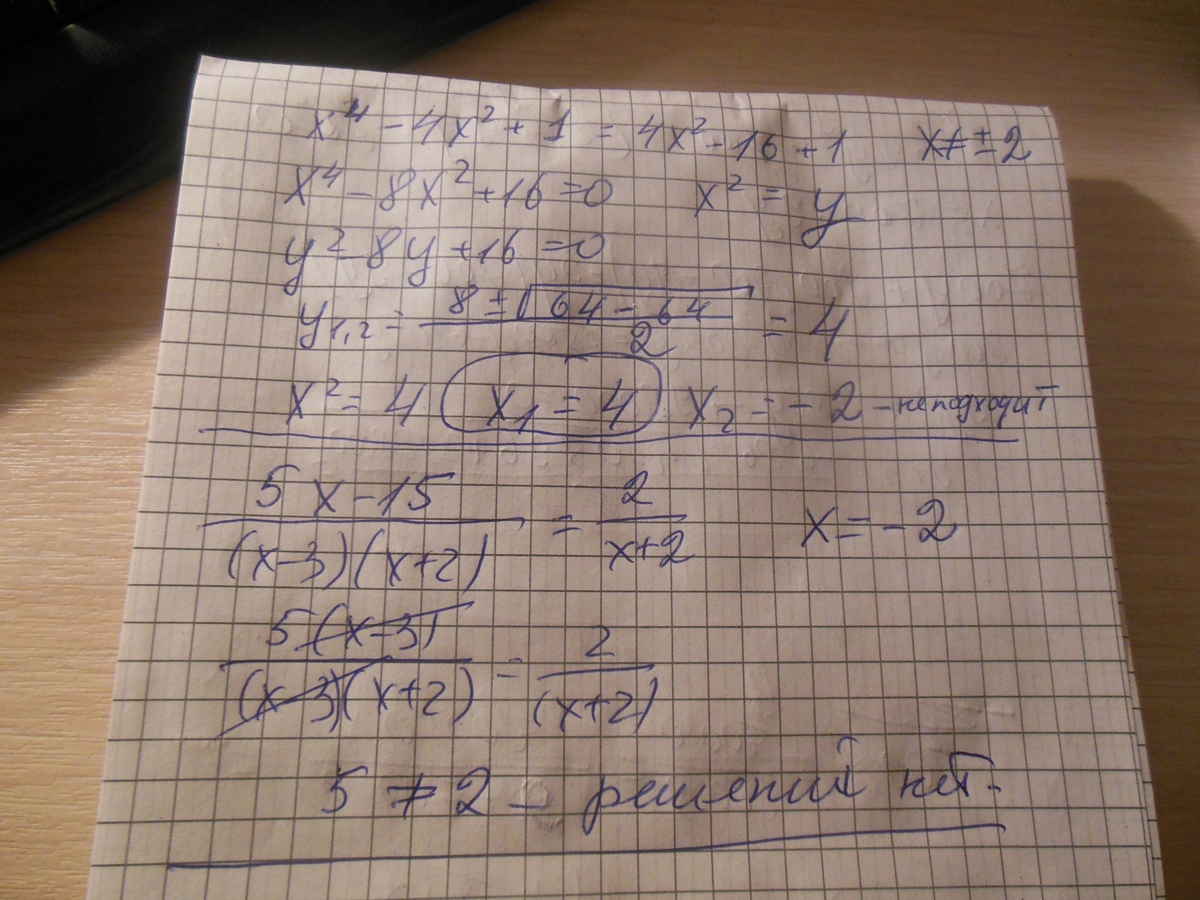 x⁴ - 4x² + 1 = 4x² - 16 + 1 x ≠ ± 2
x⁴ - 8x² + 16 = 0 x² = y
y² - 8y + 16 = 0
y₁,₂ = (8 ± √(64 - 64)) / 2 = 4
x² = 4 x₁ = 4 x₂ = - 2 - не подходит
(5x - 15) / ((x-3)(x+2)) = 2 / (x+2) x = - 2
5(x-3) / ((x-3)(x+2)) = 2 / (x+2)
5 ≠ 2 - решений нет.